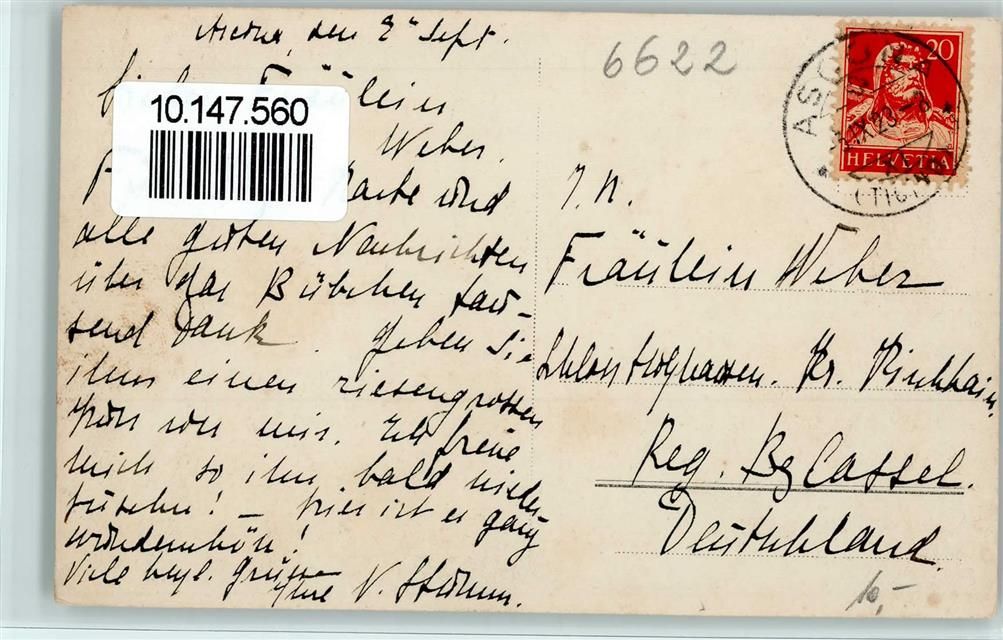 Ascona, den 2ten Sept.
10.147.560
Fräulein
Weber.
Karte und
alle guten Nachrichten
über das Bübchen tau-
send Dank. Geben Sie
ihm einen riesengrossen
von mir. Ich freue
mich so ihn bald wieder
zusehen! – hier ist es ganz
wunderschön!
Viele herzl. Grüsse
Ihre V. Sturm.
6622
20
HELVETIA
ASCONA
IX.23.
J. N.
Fräulein Weber
Schloss Kr. Kirchhain.
Reg. Bz Cassel.
Deutschland.
10,-